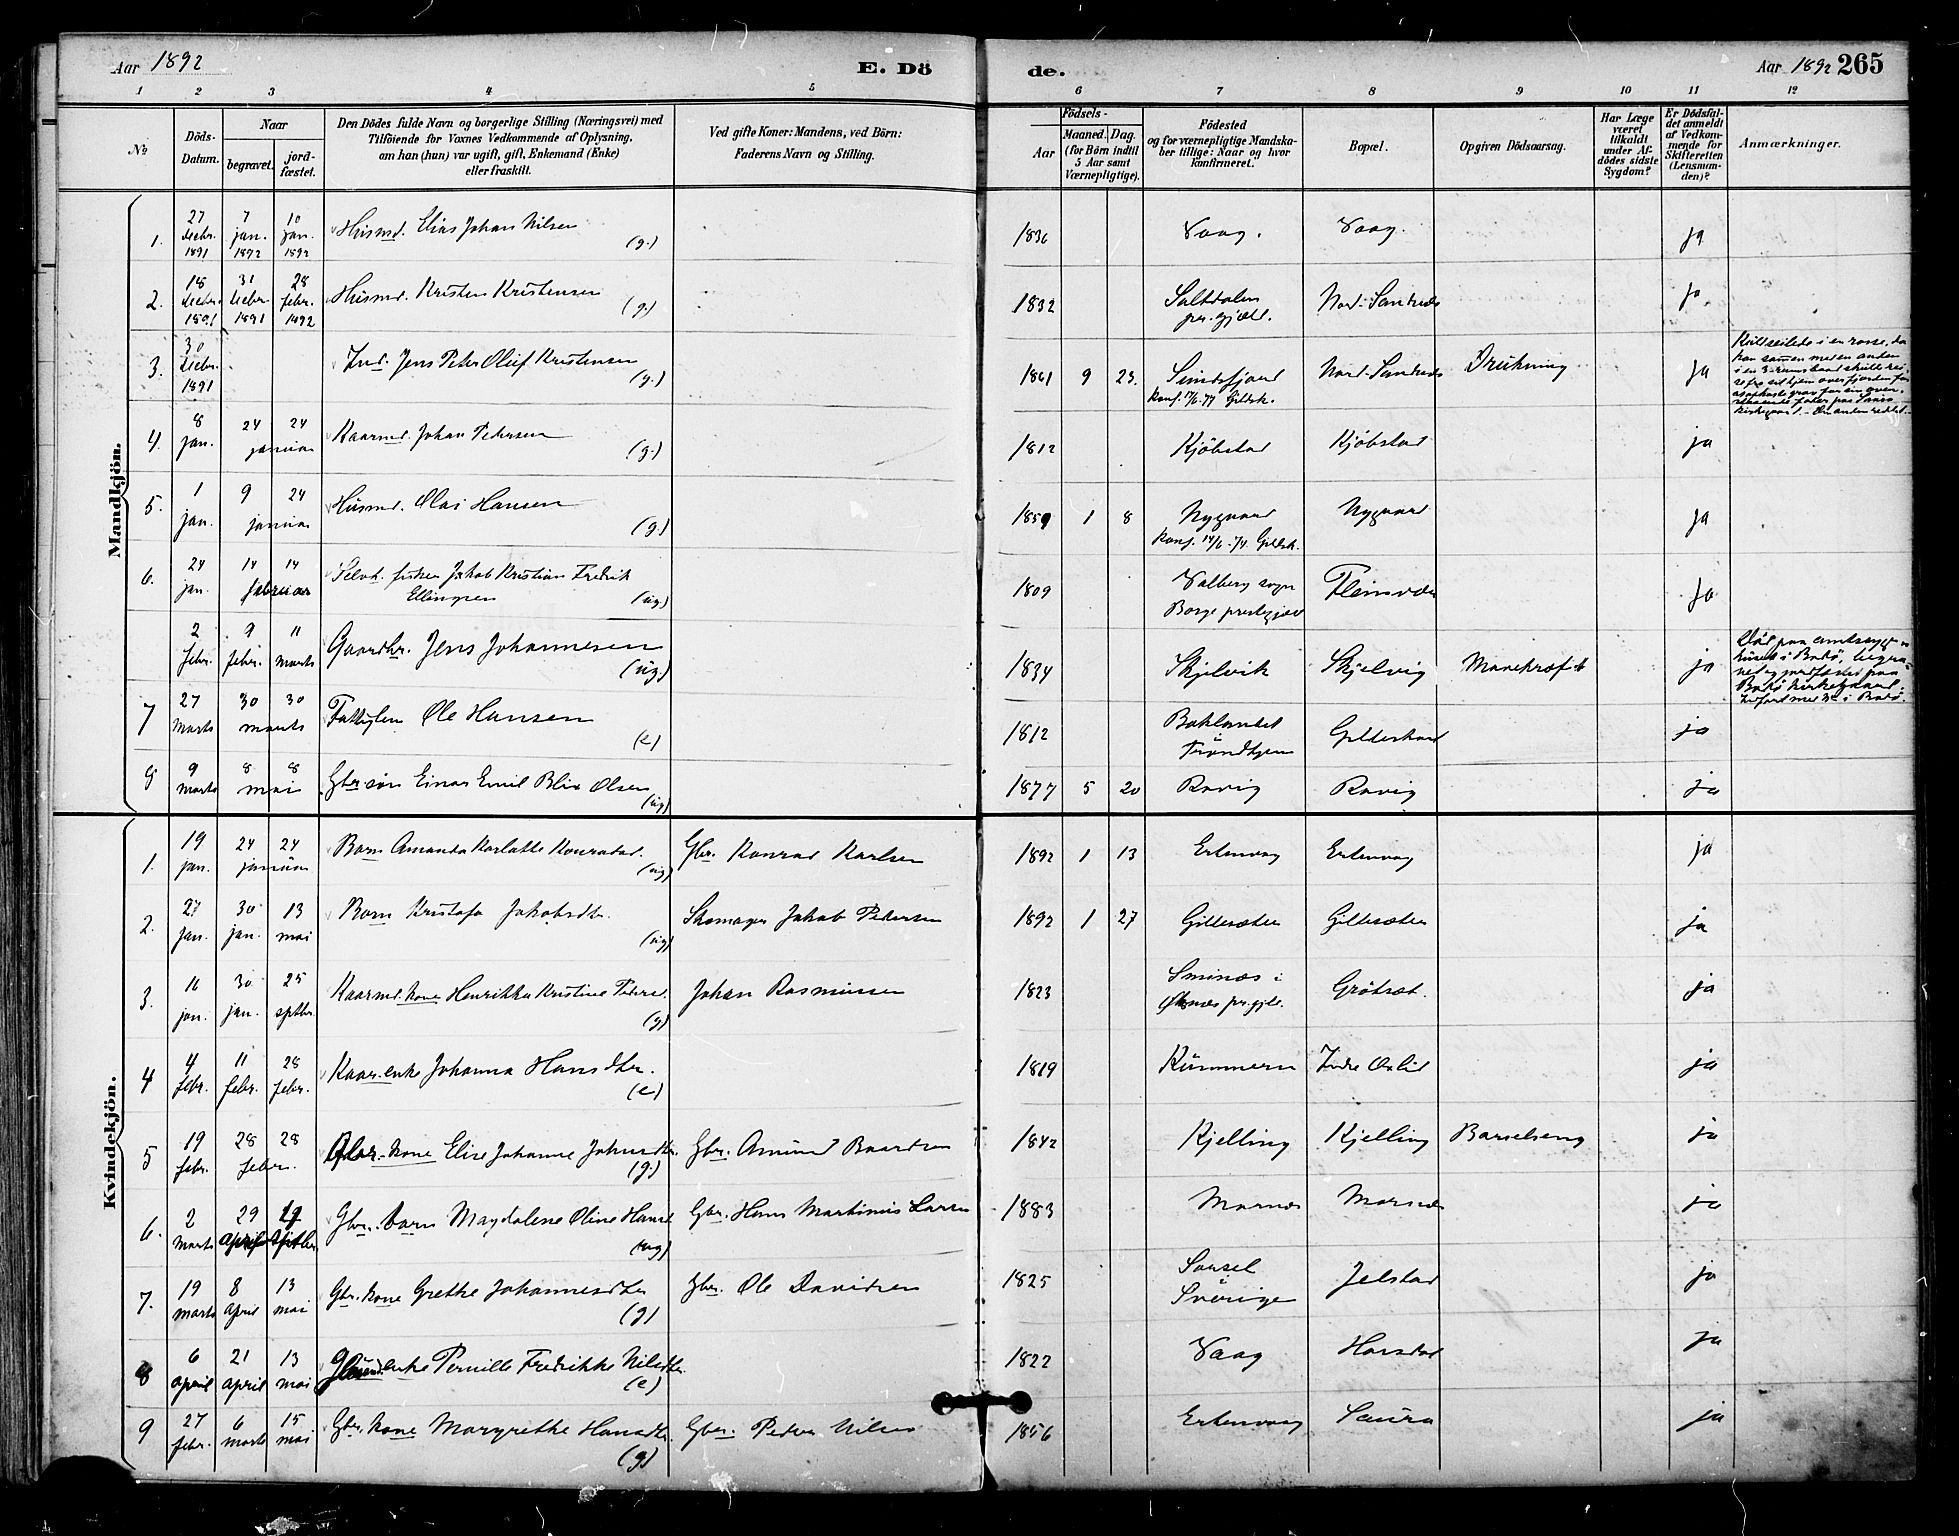 Aar 1892
E. Dö
de.
Aar 1892 265
1 2 3 4 5 6 7 8 9 10 11 12
№
Döds-Datum.
Naar
begravet.
jord-fæstet.
Den Dödes fulde Navn og borgerlige Stilling (Næringsvei) med
Tilföiende for Voxnes Vedkommende af Oplysning,
om han (hun) var ugift, gift, Enkemand (Enke)
eller fraskilt.
Ved gifte Koner: Mandens, ved Börn:
Faderens Navn og Stilling.
Födsels-
Aar
Maaned.
Dag.
(for Börn indtil
5 Aar samt
Værnepligtige).
Födested
og for værnepligtige Mandska-
ber tillige: Naar og hvor
konfirmeret.
Bopæl.
Opgiven Dödsaarsag.
Har Læge
været
tilkaldt
under Af-
dödes sidste
Sygdom?
Er Dødsfal-
det anmeldt
af Vedkom-
mende for
Skifteretten
(Lensman-
den)?
Anmærkninger.
Mandkjön.
1. 27 Decbr. 1891 7 jan. 1892 10 jan. 1892 Husmd. Elias Johan Nilsen (g.) 1836 Vaag. Vaag. ja
2. 18 Decbr. 1891 31 Decbr. 1891 28 febr. 1892 Husmd. Kristen Kristensen (g.) 1832 Saltdalen pr.gjæld. Nord-Sandnes ja
3. 30 Decbr. 1891 Ind. Jens Peter Oluf Kristensen (g.) 1861 9 23. Sundsfjord Nord-Sandnes Drukning ja
4. 8 jan. 24 24 januar Kaarmd. Johan Pedersen (g.) 1812 Kjöbstad Kjöbstad ja
5. 1 jan. 9 24 januar Husmd. Olai Hansen (g.) 1859 1 8 Nygaard Konf. 14/6-74. Gildsk. Nygaard ja
6. 24 jan. 14 14 februar Selvh. fisker Jakob Kristian Fredrik Ellingsen (ug) 1809 Valberg sogn Borge prestegjæld ja
2 febr. 9 febr. 11 marts Gaardbr. Jens Johannesen (ug.) 1834 Skjelvik Skjelvig Mavekræft ja
7 27 Marts 30 30 marts Fattiglem Ole Hansen (e) 1812 Baklandet Trondhjem Gildeskaal ja
8 9 marts 8 8 mai Gbr. søn Einar Emil Blix Olsen (ug) 1877 5 20 Ravig Ravig ja
Kvindekjön.
1. 19 jan. 24 24 januar Barn Amanda Karlotte Konradsd. (ug) Gbr. Konrad Karlsen 1892 1 13 Ertenvaag Ertenvaag ja
2. 27 jan. 30 jan. 13 mai Barn Kristofa Jakobsdtr. (ug) Skomager Jakob Pedersen 1892 1 27 Gilleæter Gilleæter ja
3. 16 jan. 30 jan. 25 septbr. Kaarmd. kone Henrikka Kristine Pedersd. (g) Johan Rasmussen 1823 Sminæs i Øksnæs pr.gjld. Grötsæt. ja
4 4 febr. 11 febr. 28 febr. Kaar.enke Johanna Hansdtr. (e) 1819 Kunnern Indre Oslid ja
5 19 febr. 28 28 febr. Gbr.-kone Elise Johanne Johnsdtr. (g) Gbr. Amund Baardsen 1842 Kjelling Kjelling Barselseng ja
6. 2 marts 29 April Septbr. Gbr. barn Magdalene Oline Hansd. (ug) Gbr. Hans Martinius Larsen 1883 Marnæs Marnæs ja
7. 19 marts 8 April 13 mai Gbr. kone Grethe Johannesdtr (g) Gbr. Ole Davidsen 1825 Sorsel Sverige Jelstad ja
8 6 april 21 april 13 mai enke Pernille Fredrikke Nilsdtr. (e) 1822 Vaag Horsdal ja
9 27 febr. 6 marts 15 mai Gbr. kone Margrethe Hansdtr. (g) Gbr. Peder Nilsen 1856 Ertenvaag Saura ja